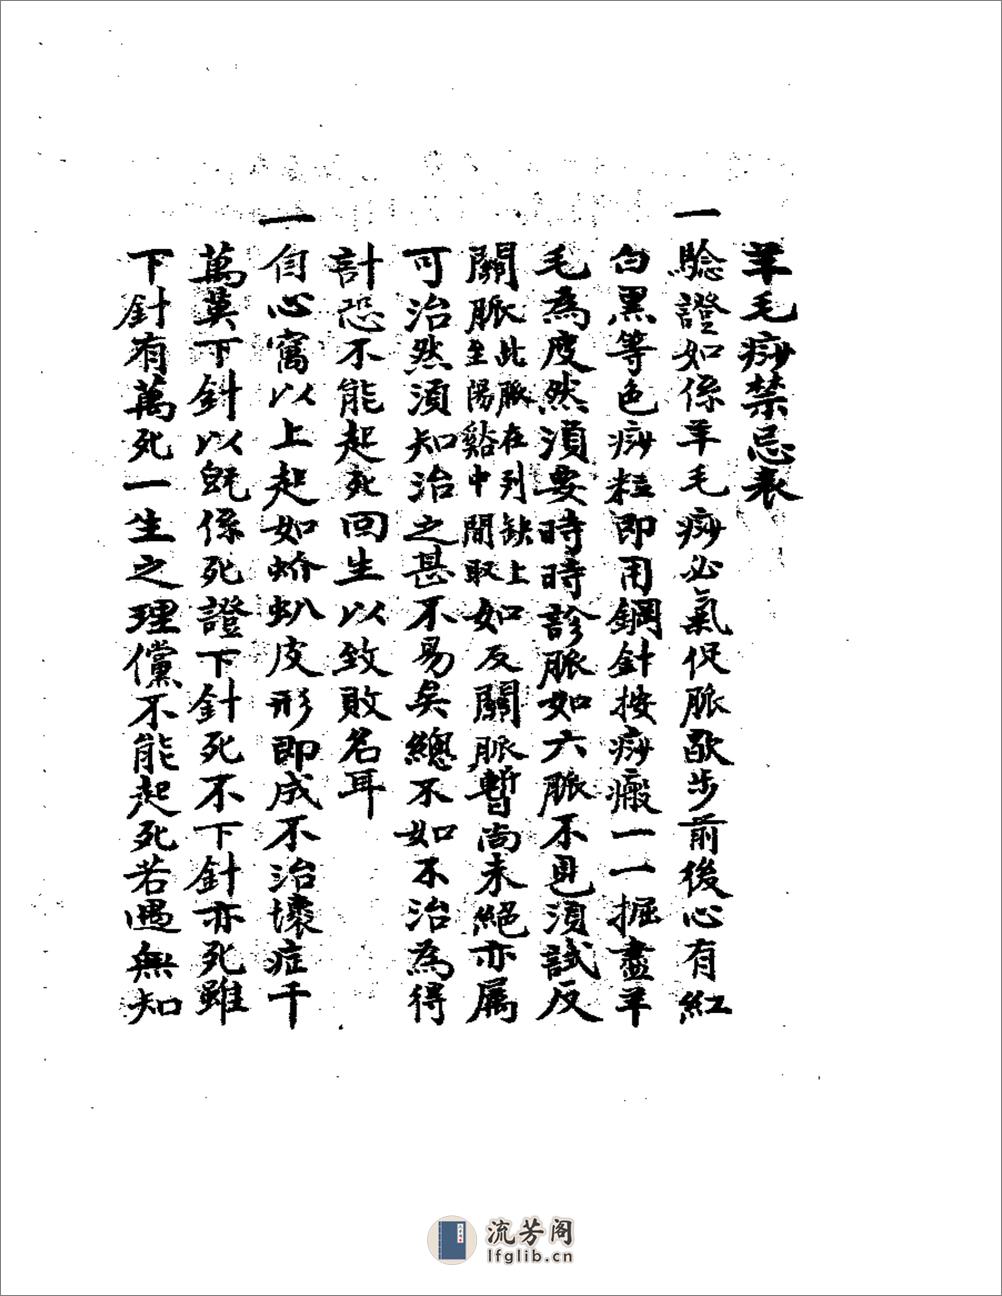 羊毛痧禁忌表
一
驗證如係羊毛痧必氣促脈歇步前後心有紅
白黑等色痧粒即用鋼針按痧瘢一一掘盡羊
毛為度然須要時時診脈如六脈不見須試反
關脈此脈在列缺上至陽谿中間取如反關脈暫尚未絕亦属
可治然須知治之甚不易矣總不如不治為得
計恐不能起死回生以致敗名耳
一
自心窩以上起如蚧蚆皮形即成不治壞症千
萬莫下針以既係死證下針死不下針亦死雖
下針有萬死一生之理儻不能起死若遇無知
流芳阁
lfglib.cn